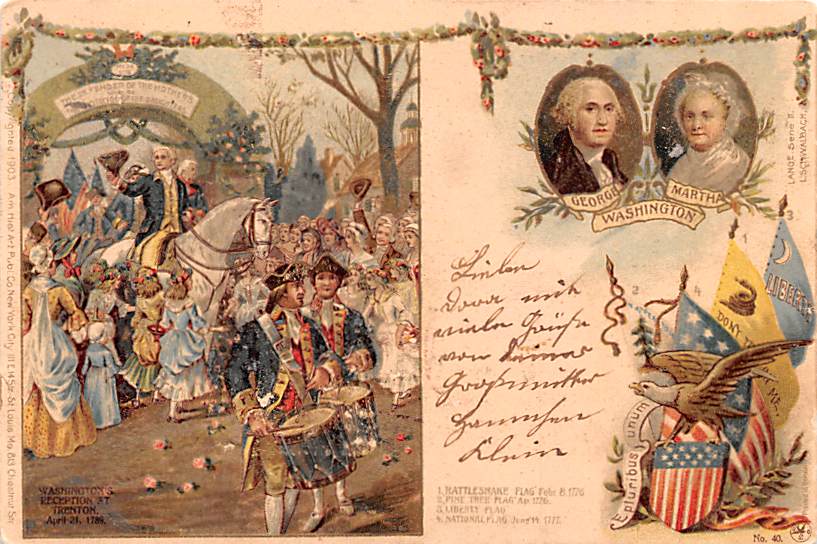 Copyrighted 1903 Am Hist Art Publ. Co New York City 111 E 14 Str. St Louis Mo 813 Chestnut Str.
THE DEFENDER OF THE MOTHERS
WASHINGTON'S
RECEPTION AT
TRENTON.
April 21. 1789.
GEORGE
MARTHA
WASHINGTON
LANGE-Serie II.
L.SCHWALBACH
3
1
2
4
LIBERTY
DON'T TREAD ON ME.
E pluribus unum
Liebe
Dora mit
viele Grüße
von Deiner
Großmutter
Hannchen
Klein
1. RATTLESNAKE FLAG Febr. 8. 1776
2. PINE TREE FLAG Ap. 1776.
3. LIBERTY FLAG
4. NATIONAL FLAG June 14. 1777.
No. 40.